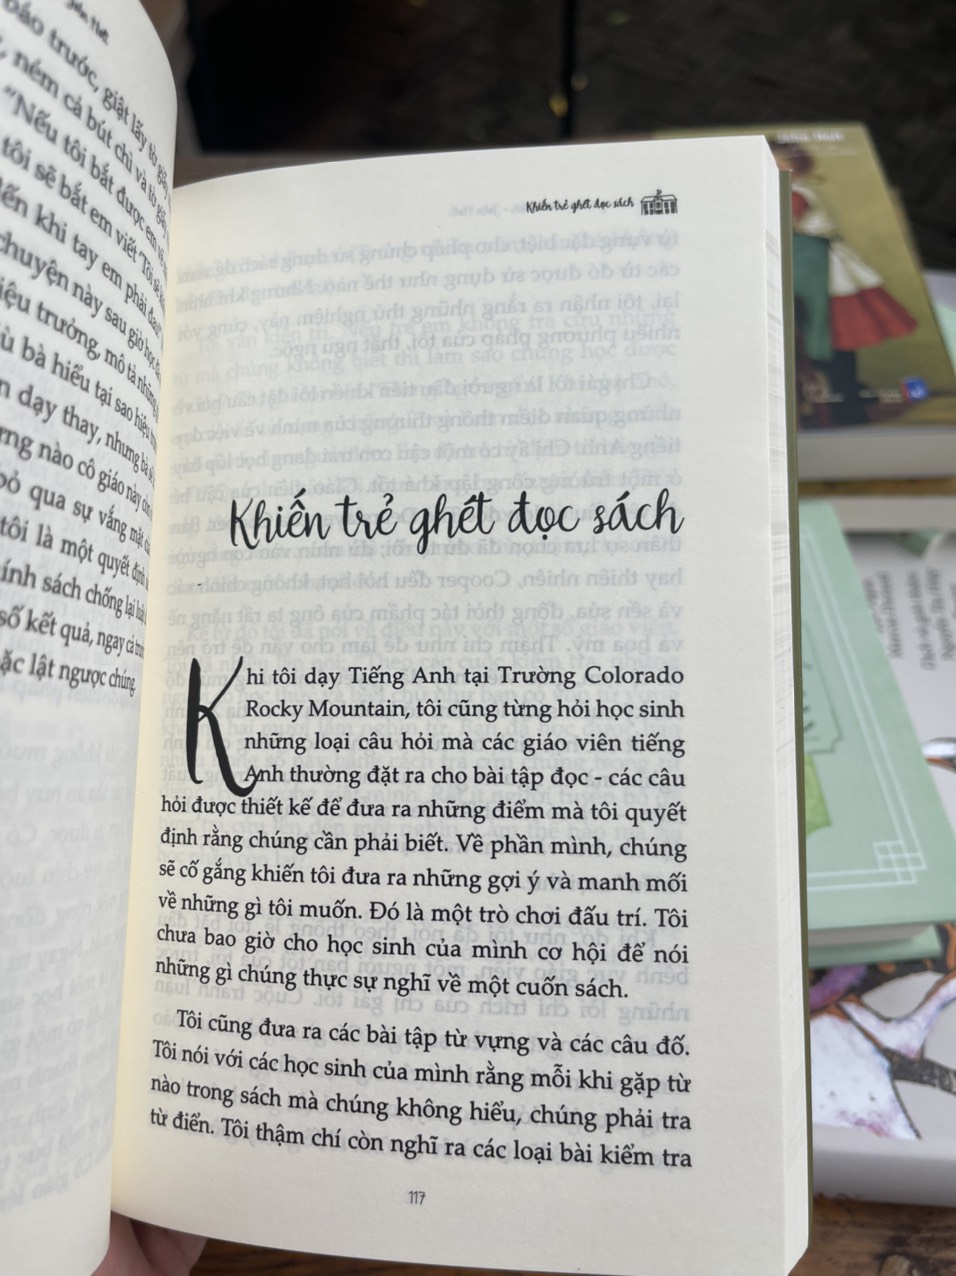 báo trước, giật lấy tờ giấy
ném cả bút chì và tờ giấy
"Nếu tôi bắt được em
tôi sẽ bắt em viết "Tôi sẽ
đến khi tay em phải đau
chuyện này sau giờ học
trưởng, mô tả những
bà hiểu tại sao hiệu
dạy thay, nhưng bà
nào cô giáo này còn
bỏ qua sự vắng mặt
tôi là một quyết định
chính sách chống lại
số kết quả, ngay cả
lật ngược chúng
Khiến trẻ ghét đọc sách
Khiến trẻ ghét đọc sách
Khi tôi dạy Tiếng Anh tại Trường Colorado
Rocky Mountain, tôi cũng từng hỏi học sinh
những loại câu hỏi mà các giáo viên tiếng
Anh thường đặt ra cho bài tập đọc - các câu
hỏi được thiết kế để đưa ra những điểm mà tôi quyết
định rằng chúng cần phải biết. Về phần mình, chúng
sẽ cố gắng khiến tôi đưa ra những gợi ý và manh mối
về những gì tôi muốn. Đó là một trò chơi đấu trí. Tôi
chưa bao giờ cho học sinh của mình cơ hội để nói
những gì chúng thực sự nghĩ về một cuốn sách.
Tôi cũng đưa ra các bài tập từ vựng và các câu đố.
Tôi nói với các học sinh của mình rằng mỗi khi gặp từ
nào trong sách mà chúng không hiểu, chúng phải tra
từ điển. Tôi thậm chí còn nghĩ ra các loại bài kiểm tra
117